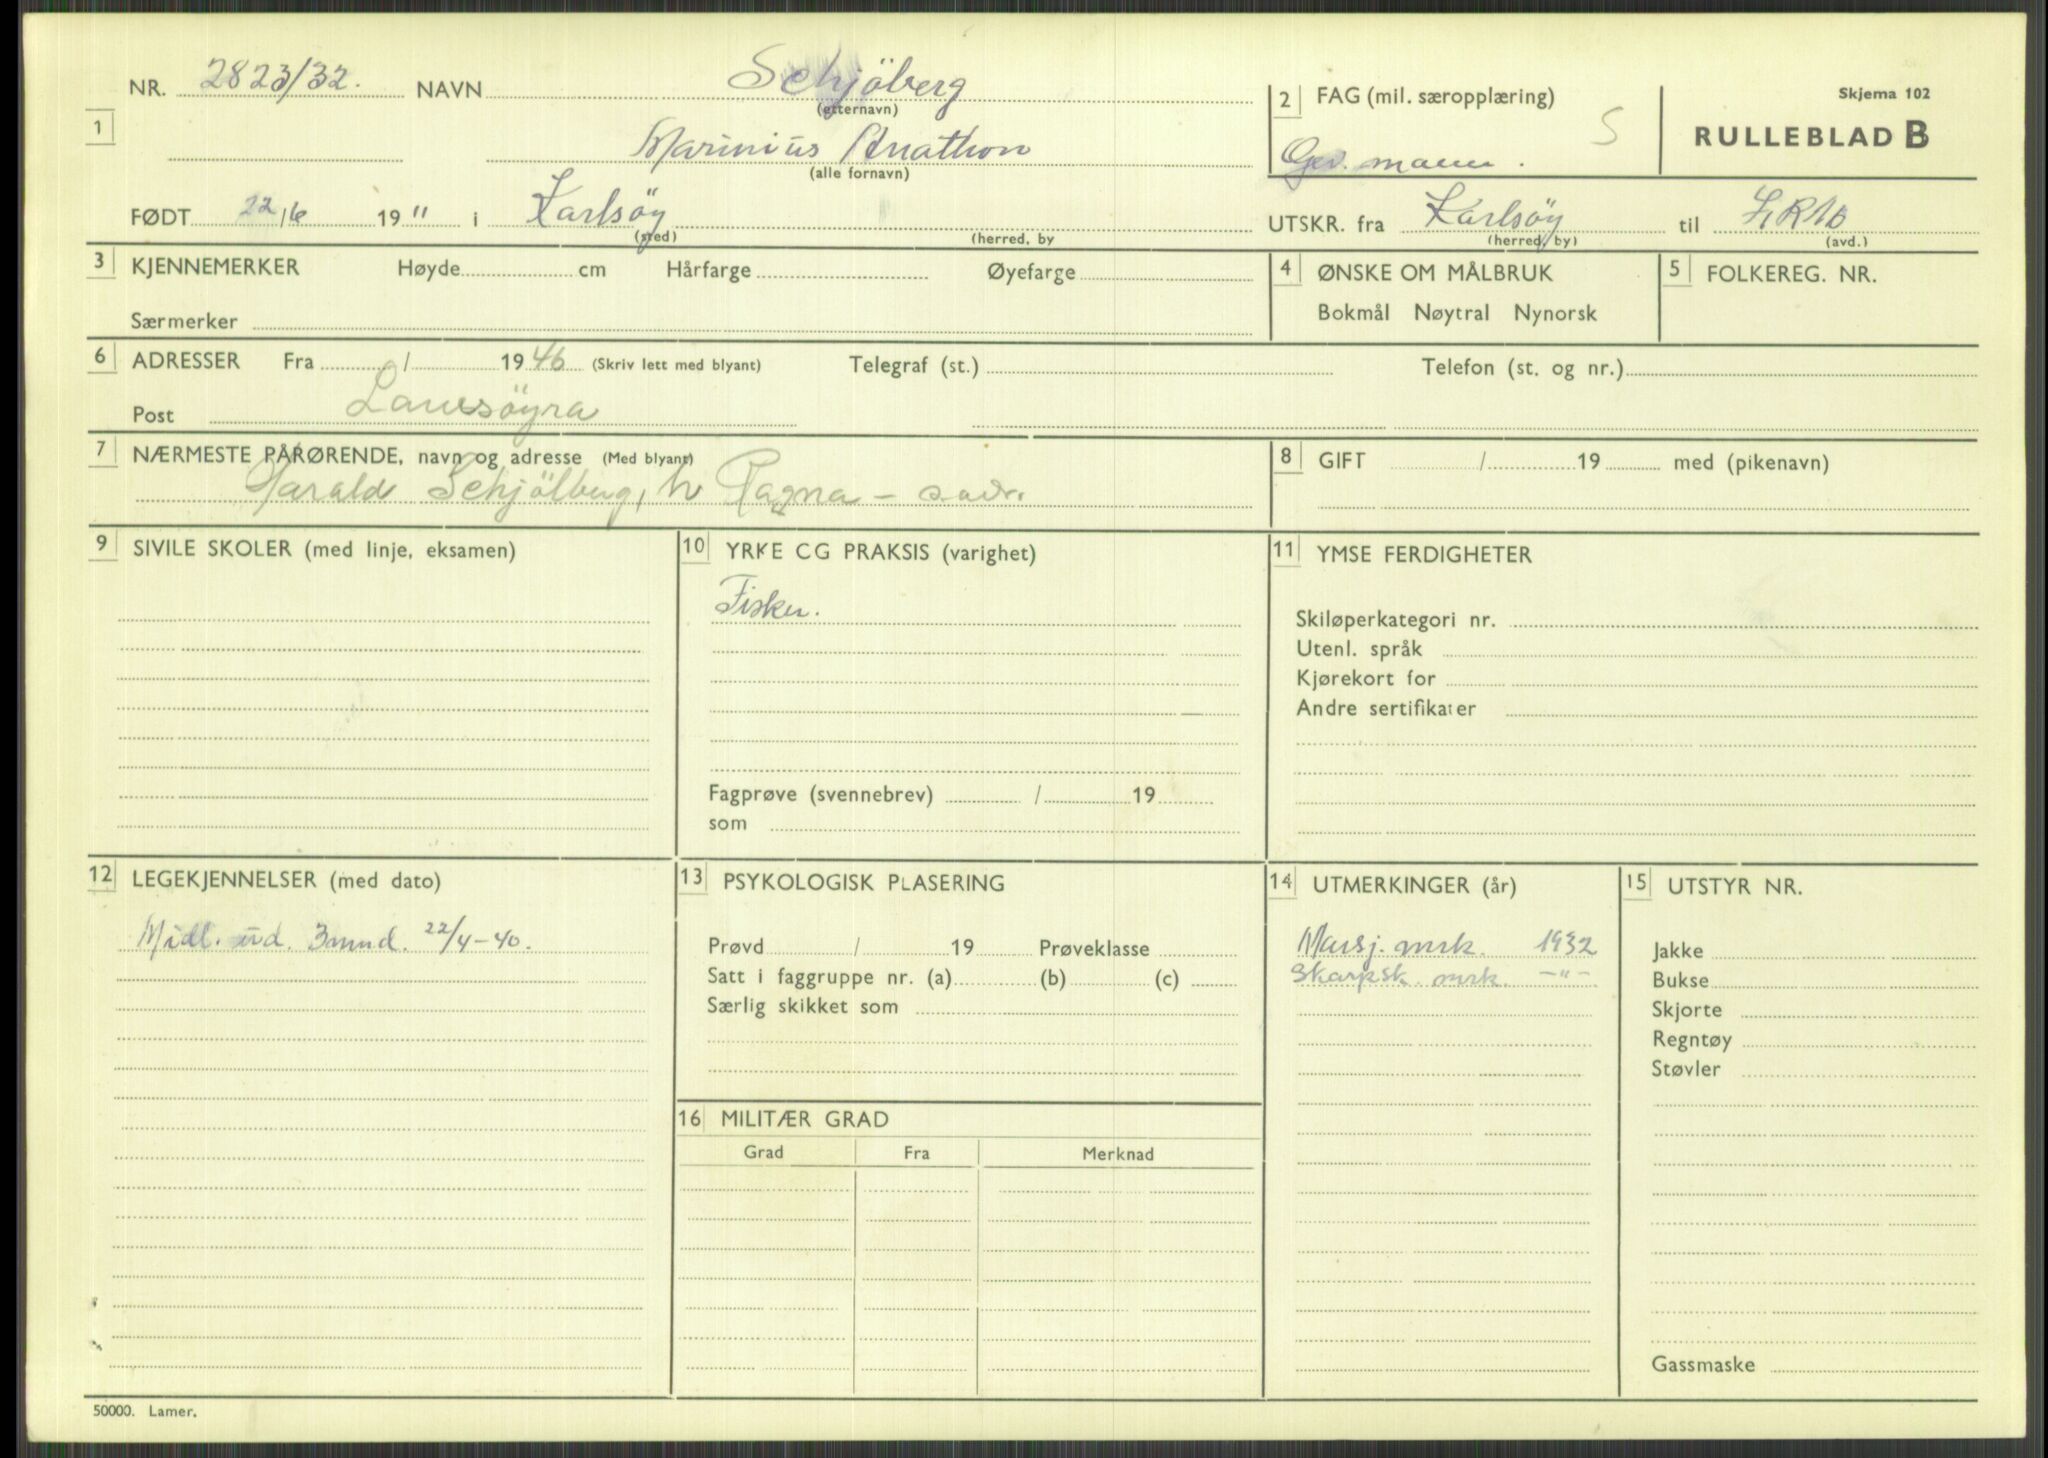 NR. 2823/32. NAVN Schjöberg
(etternavn)
1
Marinius Anathon
(alle fornavn)
2 FAG (mil. særopplæring) S
Gev. mann.
Skjema 102
RULLEBLAD B
FØDT 22/6 19 11 i Karlsöy
(sted) (herred, by
UTSKR. fra Karlsöy til
(herred, by) (avd.)
3 KJENNEMERKER Høyde cm Hårfarge Øyefarge
Særmerker
4 ØNSKE OM MÅLBRUK
Bokmål Nøytral Nynorsk
5 FOLKEREG. NR.
6 ADRESSER Fra / 1946 (Skriv lett med blyant) Telegraf (st.) Telefon (st. og nr.)
Post
7 NÆRMESTE PÅRØRENDE, navn og adresse (Med blyant)
Harald Schjölberg, h Ragna – s.adr.
8 GIFT / 19 med (pikenavn)
9 SIVILE SKOLER (med linje, eksamen)
10 YRKE CG PRAKSIS (varighet)
Fisker.
Fagprøve (svennebrev) / 19
som
11 YMSE FERDIGHETER
Skiløperkategori nr.
Utenl. språk
Kjørekort for
Andre sertifikater
12 LEGEKJENNELSER (med dato)
Midl. ud. 3 mnd. 22/4-40.
13 PSYKOLOGISK PLASERING
Prøvd / 19 Prøveklasse
Satt i faggruppe nr. (a) (b) (c)
Særlig skikket som
14 UTMERKINGER (år)
Marsj. mrk. 1932
Skarpsk. mrk. –"–
15 UTSTYR NR.
Jakke
Bukse
Skjorte
Regntøy
Støvler
Gassmaske
16 MILITÆR GRAD
Grad Fra Merknad
50000. Lamer.